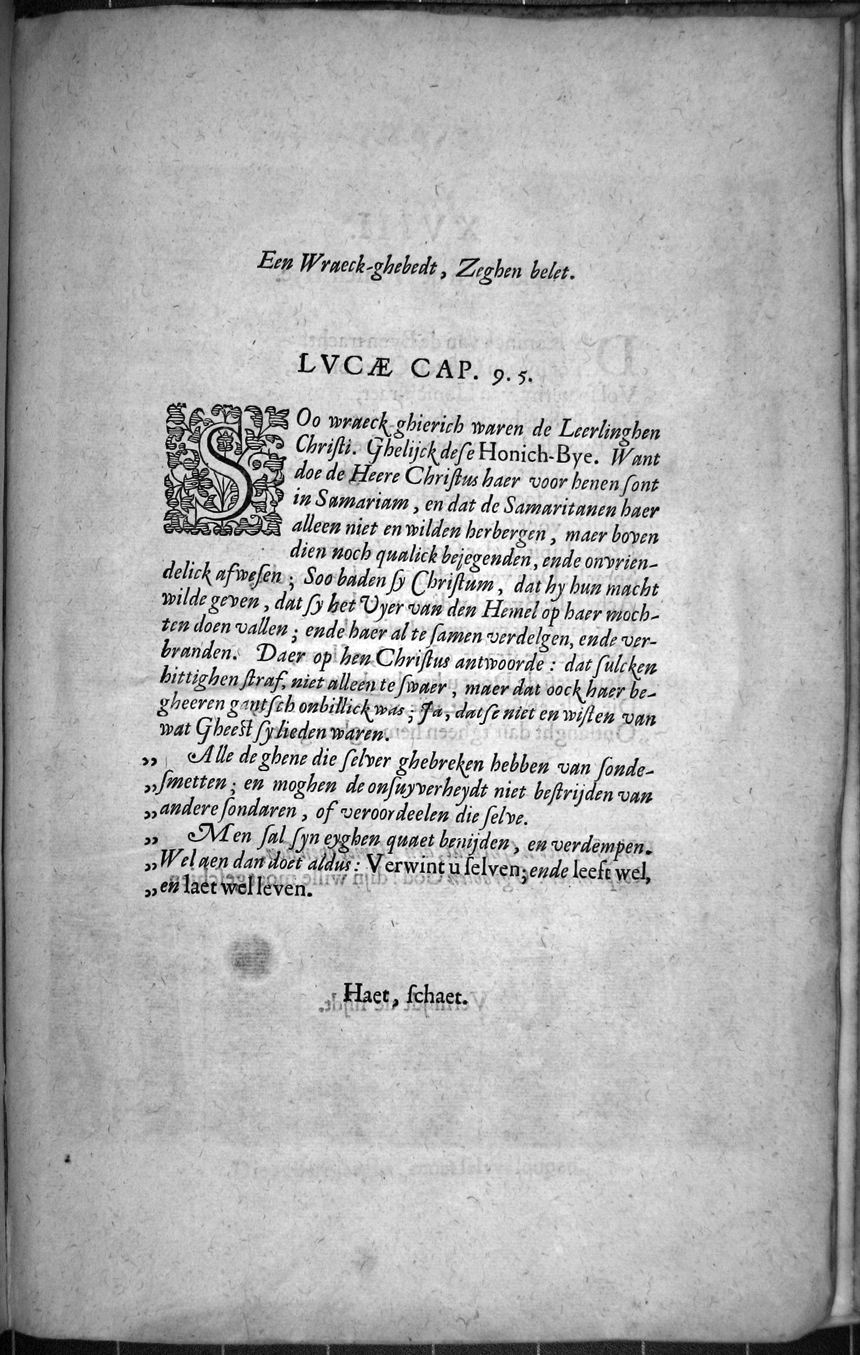 Een Wraeck-ghebedt, Zeghen belet.
LVCÆ CAP. 9. 5.
SOo wraeck-ghierich waren de Leerlinghen
Christi. Ghelijck dese Honich-Bye. Want
doe de Heere Christus haer voor henen sont
in Samariam, en dat de Samaritanen haer
alleen niet en wilden herbergen, maer boven
dien noch qualick bejegenden, ende onvrien-
delick afwesen; Soo baden sy Christum, dat hy hun macht
wilde geven, dat sy het Vyer van den Hemel op haer moch-
ten doen vallen; ende haer al te samen verdelgen, ende ver-
branden. Daer op hen Christus antwoorde: dat sulcken
hittighen straf, niet alleen te swaer, maer dat oock haer be-
gheeren gantsch onbillick was; Ja, datse niet en wisten van
wat Gheest sy lieden waren.
„ Alle de ghene die selver ghebreken hebben van sonde-
„ smetten; en moghen de onsuyverheydt niet bestrijden van
„ andere sondaren, of veroordeelen die selve.
„ Men sal syn eyghen quaet benijden, en verdempen.
„ Wel aen dan doet aldus: Verwint u selven; ende leeft wel,
„ en laet wel leven.
Haet, schaet.